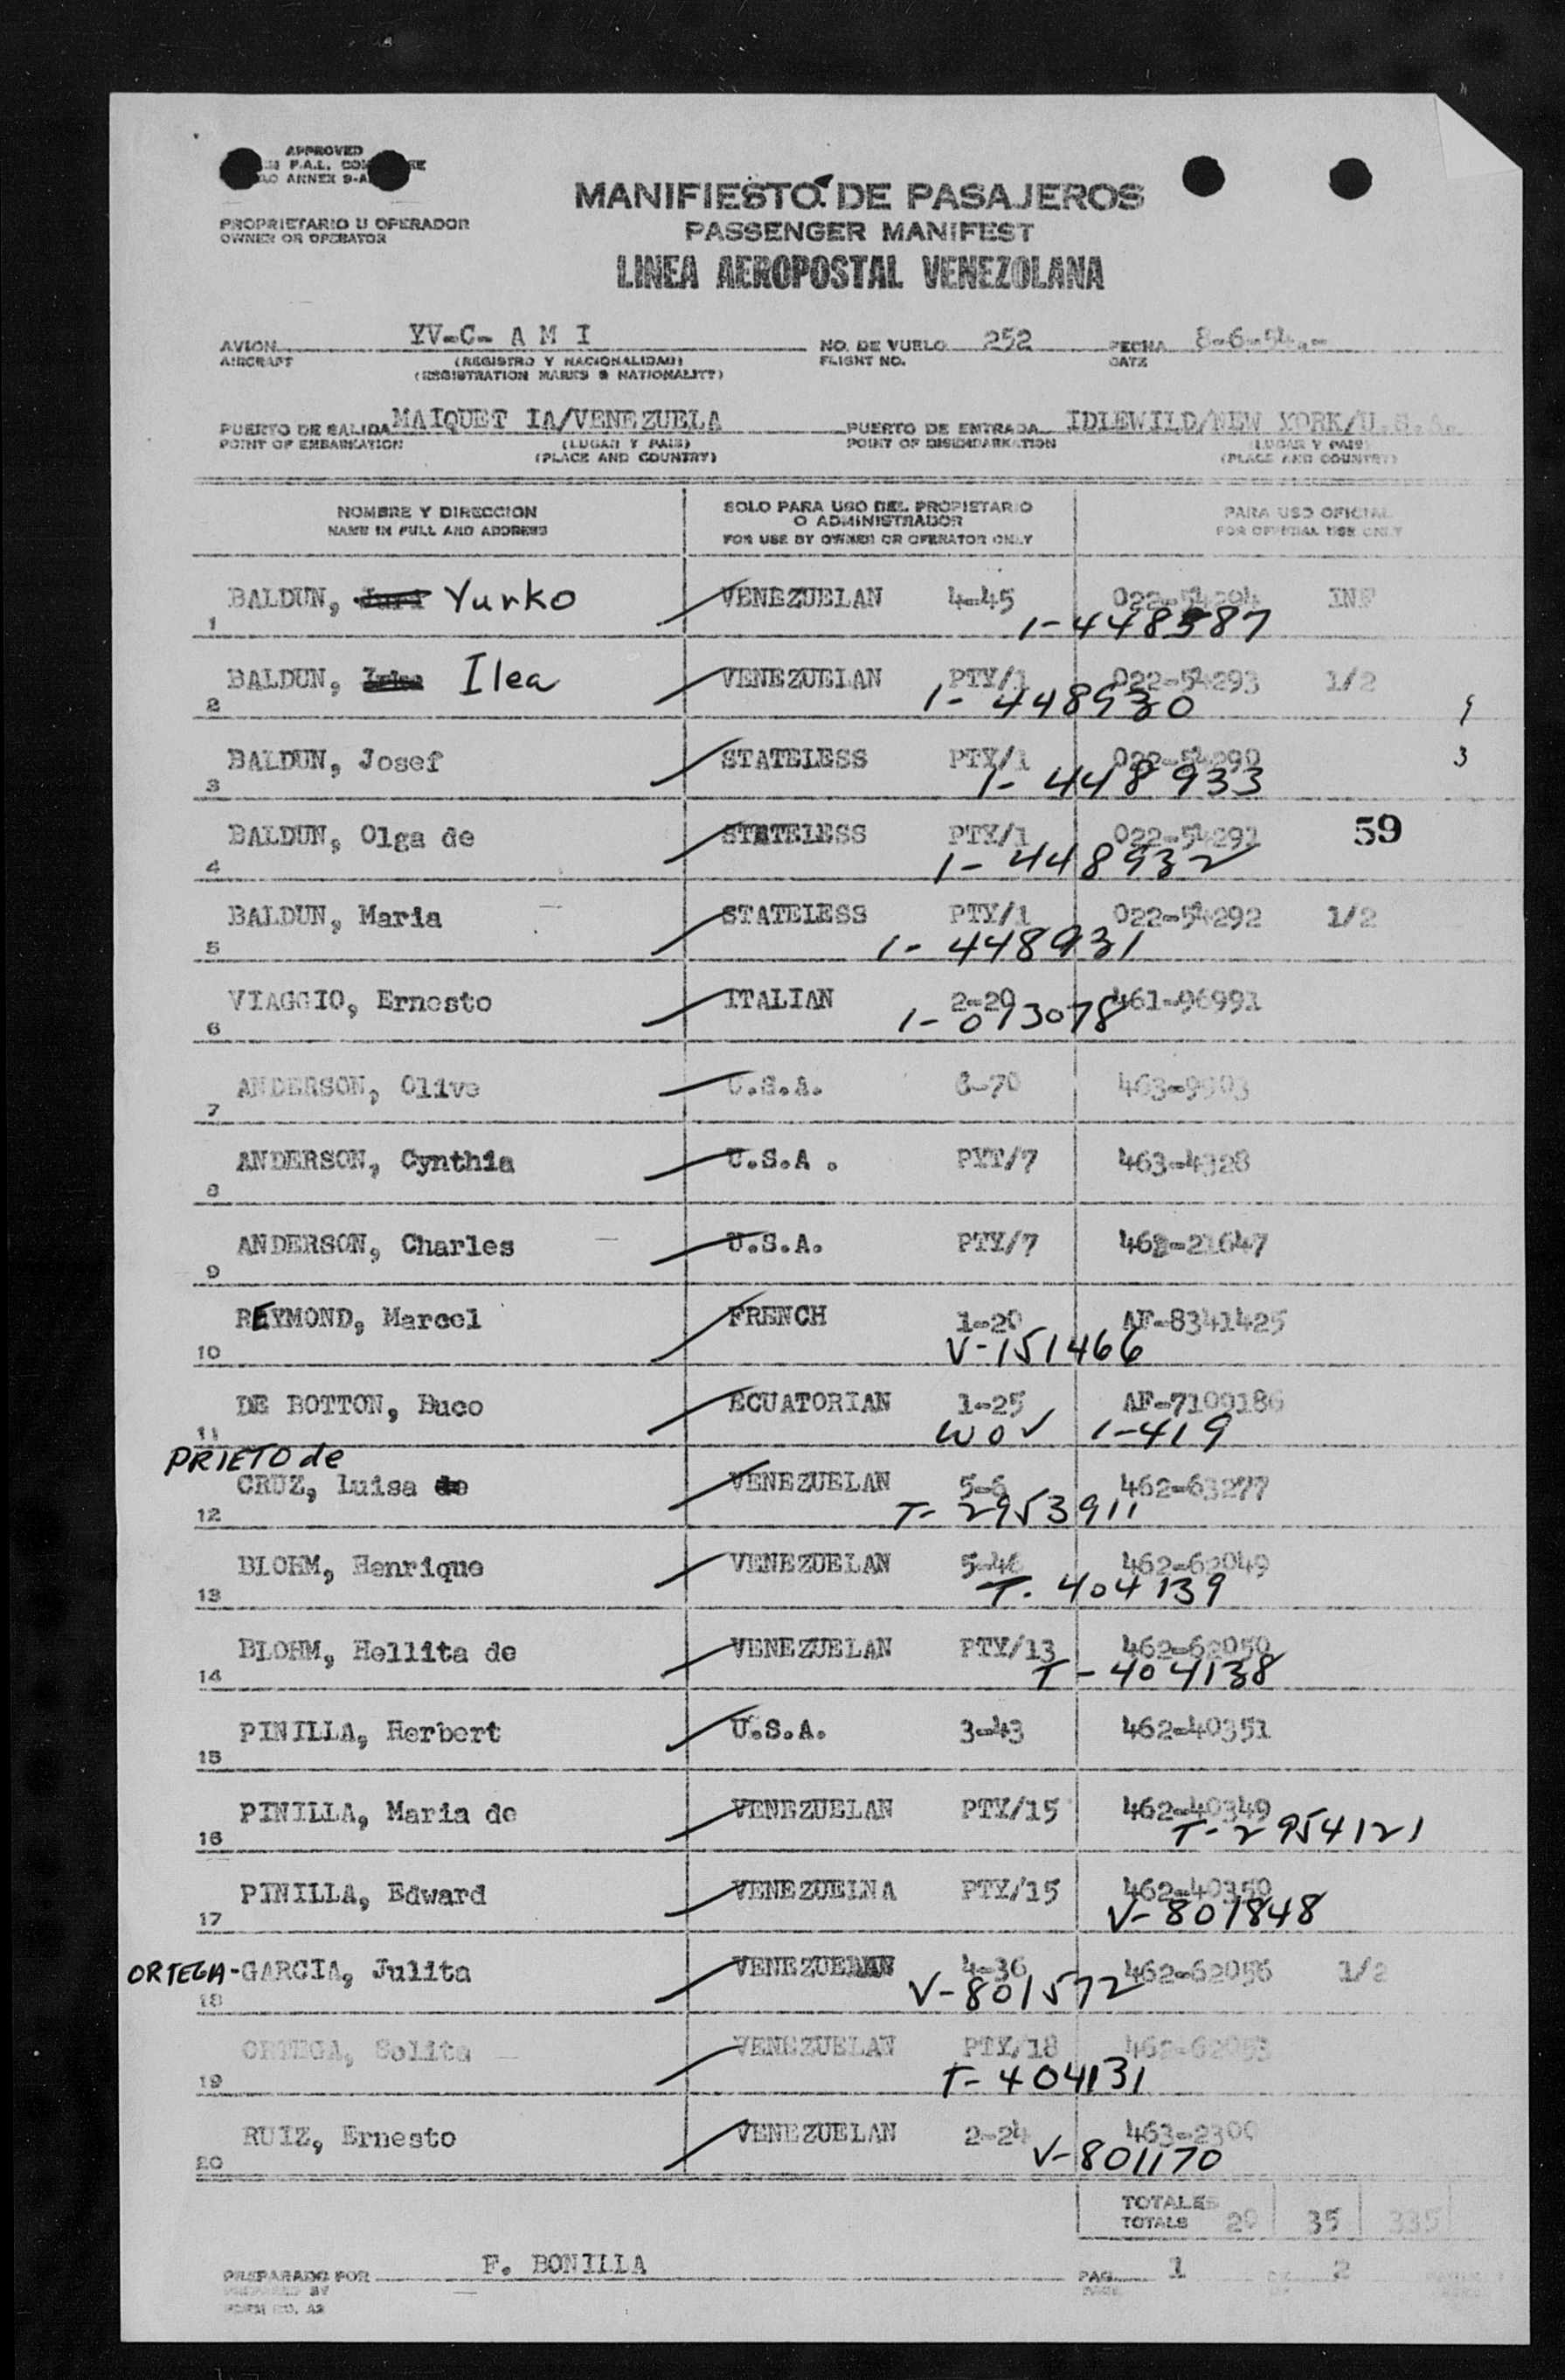 APPROVED
P.A.L.
ANNEX 9-A
PROPRIETARIO U OPERADOR
OWNER OR OPERATOR
MANIFIESTO DE PASAJEROS
PASSENGER MANIFEST
LINEA AEROPOSTAL VENEZOLANA
AVION YV-C- A M I NO. DE VUELO 252 FECHA 8-6-54.-
AIRCRAFT (REGISTRO Y NACIONALIDAD) FLIGHT NO. DATE
(REGISTRATION MARKS & NATIONALITY)
PUERTO DE SALIDA MAIQUET IA/VENEZUELA PUERTO DE ENTRADA IDLEWILD/NEW YORK/U.S.A.
POINT OF EMBARKATION (LUGAR Y PAIS) POINT OF DISEMBARKATION (LUGAR Y PAIS)
(PLACE AND COUNTRY) (PLACE AND COUNTRY)
NOMBRE Y DIRECCION SOLO PARA USO DEL PROPIETARIO PARA USO OFICIAL
O ADMINISTRADOR
NAME IN FULL AND ADDRESS FOR USE BY OWNER OR OPERATOR ONLY FOR OFFICIAL USE ONLY
BALDUN, Yurko VENEZUELAN 4-45 022-54294 INF
1 1-448587
BALDUN, Ilea VENEZUELAN PTY/1 022-54293 1/2
2 1-448930
BALDUN, Josef STATELESS PTY/1 022-54290 3
3 1-448933
BALDUN, Olga de STATELESS PTY/1 022-54291 59
4 1-448932
BALDUN, Maria STATELESS PTY/1 022-54292 1/2
5 1-448931
VIAGGIO, Ernesto ITALIAN 2-29 461-96991
6 1-093078
ANDERSON, Olive U.S.A. 6-70
7
ANDERSON, Cynthia U.S.A . PYT/7 463-4328
8
ANDERSON, Charles U.S.A. PTY/7 463-21647
9
REYMOND, Marcel FRENCH 1-20 AF-8341425
10 V-151466
DE BOTTON, Buco ECUATORIAN 1-25 AF-7109186
11 WOV 1-419
PRIETO de
CRUZ, Luisa de VENEZUELAN 5-6 462-63277
12 T-2953911
BLOHM, Henrique VENEZUELAN 5-46 462-62049
13 T-404139
BLOHM, Hellita de VENEZUELAN PTY/13 462-62050
14 T-404138
PINILLA, Herbert U.S.A. 3-43 462-40351
15
PINILLA, Maria de VENEZUELAN PTY/15 462-40349
16 T-2954121
PINILLA, Edward VENEZUELNA PTY/15 462-40350
17 V-801848
ORTEGA-GARCIA, Julita VENEZUELAN 4-36 462-62056 1/2
18 V-801572
ORTEGA, Solita VENEZUELAN PTY/18 462-62053
19 T-404131
RUIZ, Ernesto VENEZUELAN 2-24 463-2300
20 V-801170
TOTALES
TOTALS 29 35 335
PREPARADO POR F. BONILLA PAG. 1 DE 2
PREPARED BY PAGE
FORM NO. A2